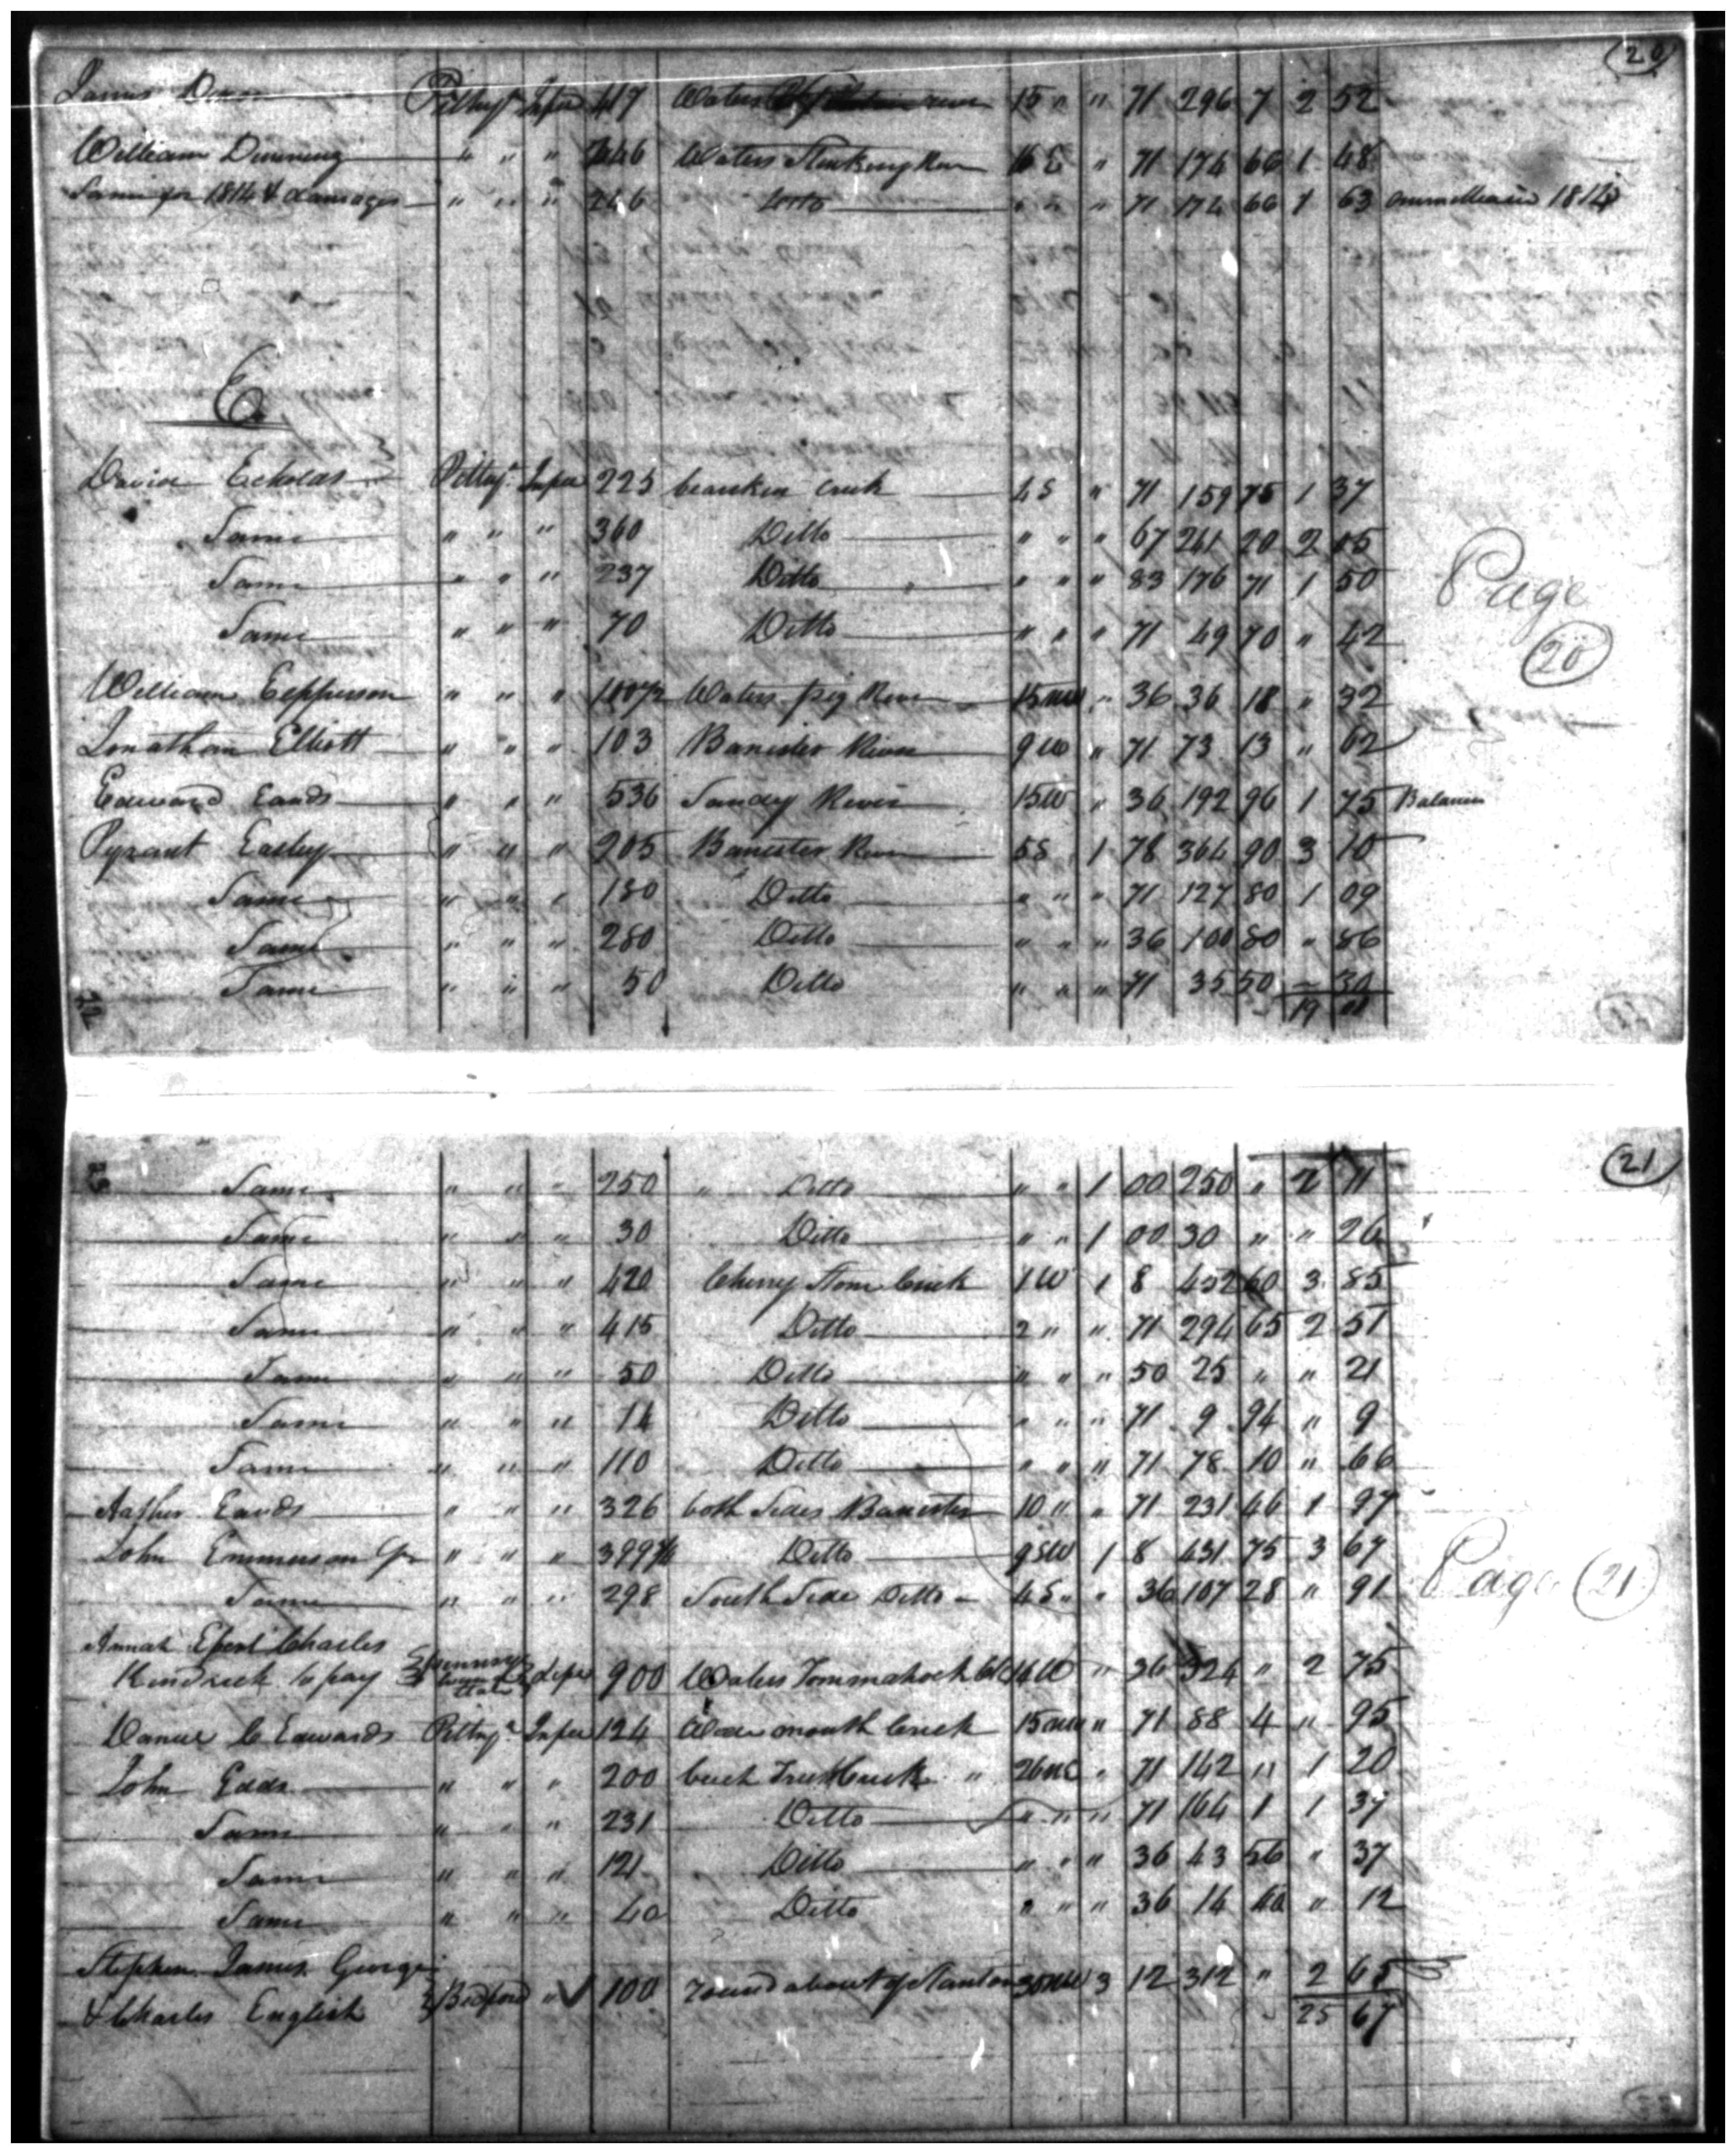 20
James Pittsy Infee 417 Waters river 15 " " 71 296 7 2 52
William Dunning " " " 246 Waters Stinking River 16 E " 71 174 66 1 48
Same for 1814 & damages " " " 246 Ditto " " " 71 174 66 1 63 1814
E
David Echolas Pittsy Infee 225 creek 4 S " 71 159 75 1 37
Same " " " 360 Ditto " " " 67 241 20 2 05
Same " " " 237 Ditto " " " 83 176 71 1 50
Same " " " 70 Ditto " " " 71 49 70 " 42
Page
20
William Epperson " " " 100½ Waters pig River 15 NW " 36 36 18 " 32
Jonathan Elliott " " " 103 Banister River 9 W " 71 73 13 " 62
Edward Eands " " " 536 Sandy River 15 W " 36 192 96 1 75 Balance
Pyrant Easley " " " 205 Banister River 5 S 1 78 364 90 3 10
Same " " " 180 Ditto " " " 71 127 80 1 09
Same " " " 280 Ditto " " " 36 100 80 " 86
Same " " " 50 Ditto " " " 71 35 50 – 30
19 01
21
Same " " " 250 " Ditto " " 1 00 250 " 2 11
Same " " " 30 Ditto " " 1 00 30 " " 26
Same " " " 420 Cherry Stone Creek 1 W 1 8 452 60 3 85
Same " " " 415 Ditto 2 " " 71 294 65 2 51
Same " " " 50 Ditto " " " 50 25 " " 21
Same " " " 14 Ditto " " " 71 9 94 " 9
Same " " " 110 Ditto " " " 71 78 10 " 66
Arther Eands " " " 326 both Sides Banister 10 " " 71 231 46 1 97
John Emmerson Jr " " " 399¾ Ditto 9 SW 1 8 431 75 3 67
Page 21
Same " " " 298 South Side Ditto 4 S " " 36 107 28 " 91
Annah Charles
Kendrick to pay 900 Waters Tommahock Ck 16 W " 36 324 " 2 75
C Edwards Pittsy Infee 124 mouth Creek 15 NW " 71 88 4 " 95
John Edds " " " 200 Tree Creek " 26 NE " 71 142 " 1 20
Same " " " 231 Ditto " " " 71 164 1 1 37
Same " " " 121 Ditto " " " 36 43 56 " 37
Same " " " 40 Ditto " " " 36 14 40 " 12
Stephen James George
& Charles English Bedford " 100 round about of Stanton 30 NW 3 12 312 " 2 65
25 67